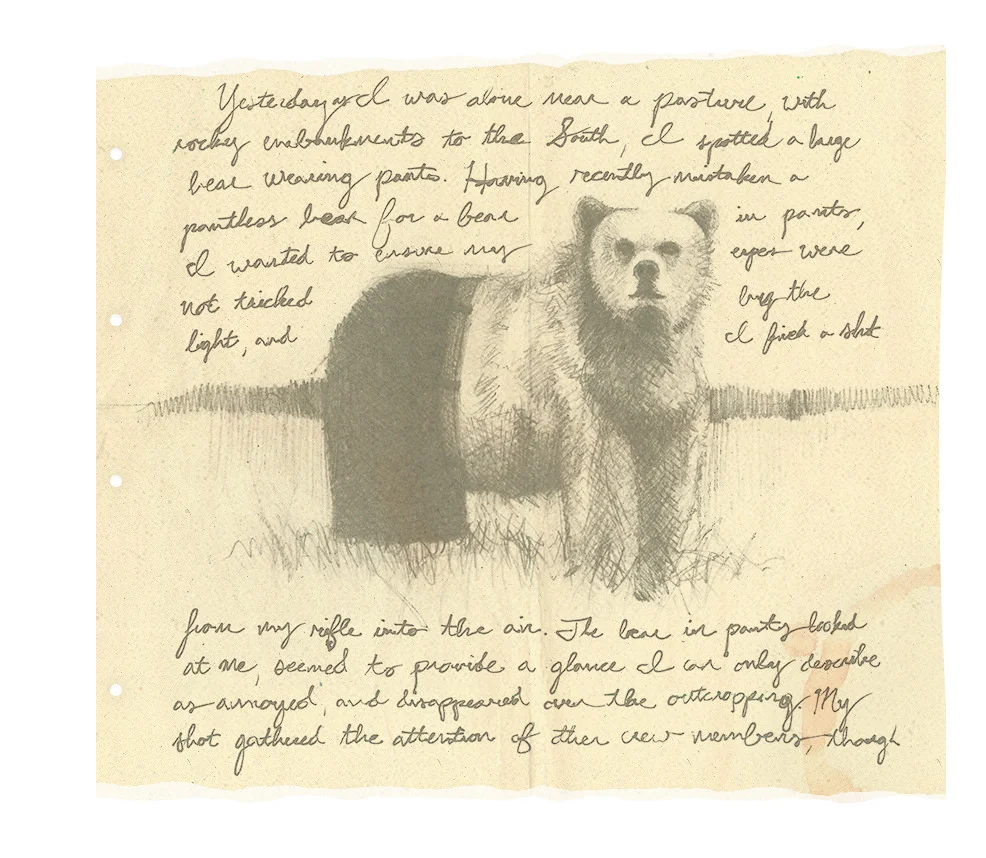 Yesterday as I was alone near a pasture, with
rocky enbankments to the South, I spotted a large
bear wearing pants. Having recently mistaken a
pantless bear for a bear in pants,
I wanted to ensure my eyes were
not tricked by the
light, and I fired a shot
from my rifle into the air. The bear in pants looked
at me, seemed to provide a glance I can only describe
as annoyed, and disappeared over the outcropping. My
shot gathered the attention of other crew members, though